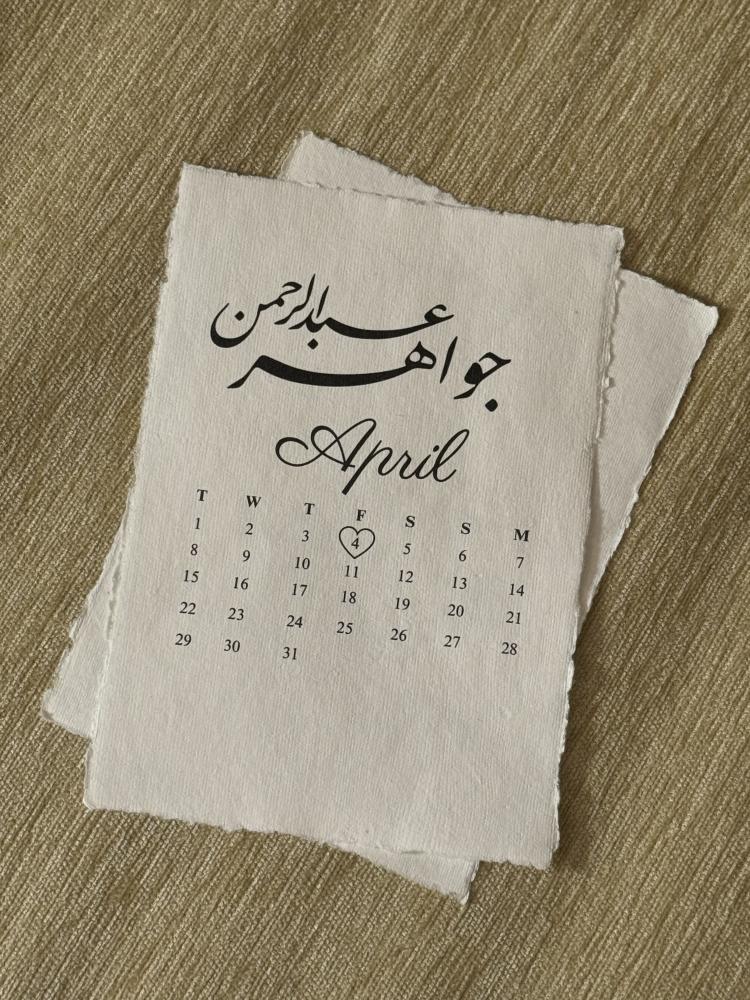 عبدالرحمن
جواهر
April
T W T F S S M
1 2 3 4 5 6 7
8 9 10 11 12 13 14
15 16 17 18 19 20 21
22 23 24 25 26 27 28
29 30 31